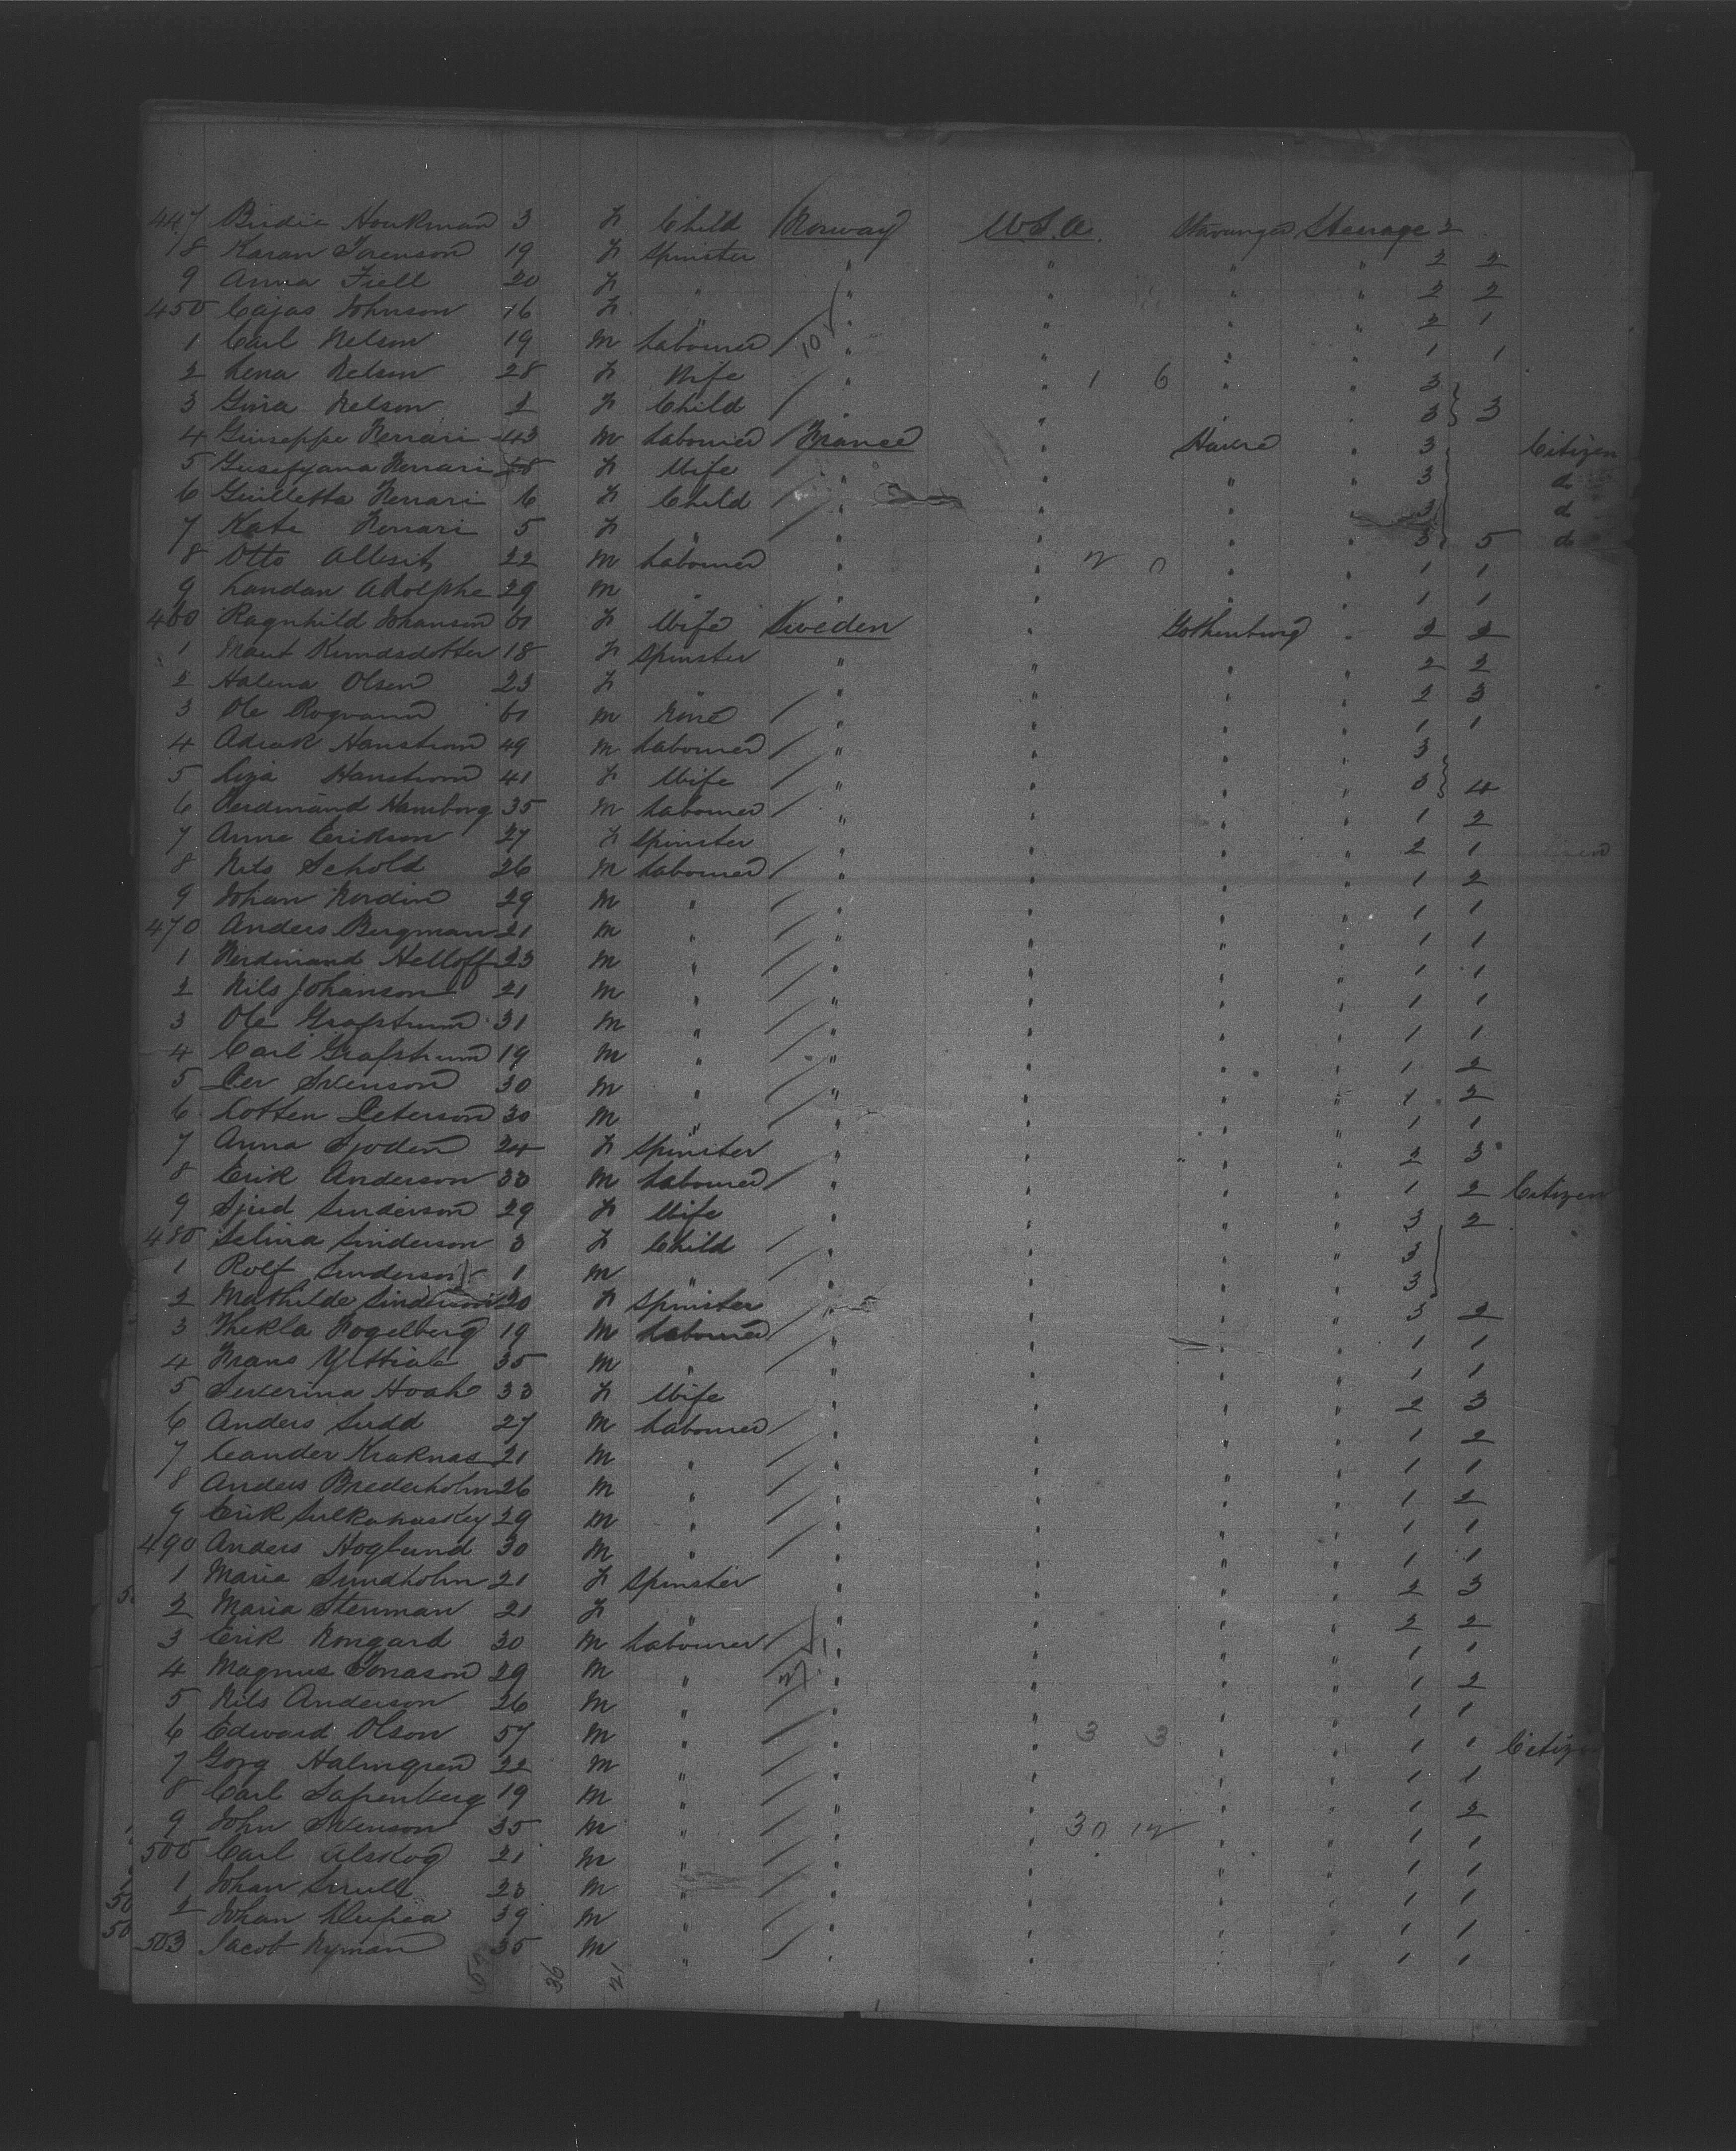 447 Birdie Honkman 3 F Child Norway U.S.A. Stavanger Steerage 2
8 Karan Sorenson 19 F Spinster " " " " 2 2
9 Anna Fiell 20 F " " " " " 2 2
450 Cajas Johnson 16 F " " " " " 2 1
1 Carl Nelson 19 M Labourer " " " " 1 1
2 Lena Nelson 28 F Wife " " 1 6 " " 3
3 Gina Nelson 2 F Child " " " " 3 3
4 Giuseppe Ferrari 43 M Labourer France " Havre " 3 Citizen
5 Ferrari 28 F Wife " " " " 3 do
6 Guilletta Ferrari 6 F Child " " " " 3 do
7 Kate Ferrari 5 F " " " " " 3 5 do
8 Otto 22 M Labourer " " " " 1 1
9 Landau Adolphe 29 M " " " " " 1 1
460 Ragnhild Johanson 61 F Wife Sweden " Gothenburg " 2 2
1 Knudsdotter 18 F Spinster " " " " 2 2
2 Halena Olsen 23 F " " " " " 2 3
3 Ole 61 M None " " " " 1 1
4 Hanstrom 49 M Labourer " " " " 3
5 Hanstrom 41 F Wife " " " " 3 4
6 Ferdinand Hamborg 35 M Labourer " " " " 1 2
7 Anna Erikson 27 F Spinster " " " " 2 1
8 Nils Sehold 26 M Labourer " " " " 1 2
9 Johan Nordin 29 M " " " " " 1 1
470 Anders Bergman 21 M " " " " " 1 1
1 Ferdinand Helloff 23 M " " " " " 1 1
2 Nils Johanson 21 M " " " " " 1 1
3 Ole Grafstrum 31 M " " " " " 1 1
4 Carl Grafstrum 19 M " " " " " 1 2
5 Per Svenson 30 M " " " " " 1 2
6 Lotten Peterson 30 M " " " " " 1 1
7 Anna Sjodin 24 F Spinster " " " " 2 3
8 Erik Anderson 33 M Labourer " " " " 1 2 Citizen
9 Sinderson 29 F Wife " " " " 3 2
480 Selina Sinderson 3 F Child " " " " 3
1 Rolf Sinderson 1 M " " " " " 3
2 Mathilde Sinderson 20 F Spinster " " " " 3 2
3 Thekla Fogelberg 19 M Labourer " " " " 1 1
4 Frans 35 M " " " " " 1 1
5 Severina Hoak 33 F Wife " " " " 2 3
6 Anders Sudd 27 M Labourer " " " " 1 2
7 Leander Kraknas 21 M " " " " " 1 1
8 Anders Brederholm 26 M " " " " " 1 2
9 Erik 29 M " " " " " 1 1
490 Anders Hoglund 30 M " " " " " 1 1
1 Maria Sundholm 21 F Spinster " " " " 2 3
2 Maria Stenman 21 F " " " " " 2 2
3 Erik Norgard 30 M Labourer " " " " 1 1
4 Magnus Jonason 29 M " " " " " 1 2
5 Nils Anderson 26 M " " " " " 1 1
6 Edward Olson 57 M " " " 3 3 " " 1 1 Citizen
7 Gorg Halmgren 22 M " " " " " 1 1
8 Carl Safrenberg 19 M " " " " " 1 2
9 John Svenson 35 M " " " " " 1 1
500 Carl Alskog 21 M " " " " " 1 1
1 Johan 23 M " " " " " 1 1
2 Johan 39 M " " " " " 1 1
503 Jacob Nyman 35 M " " " " " 1 1
36 21